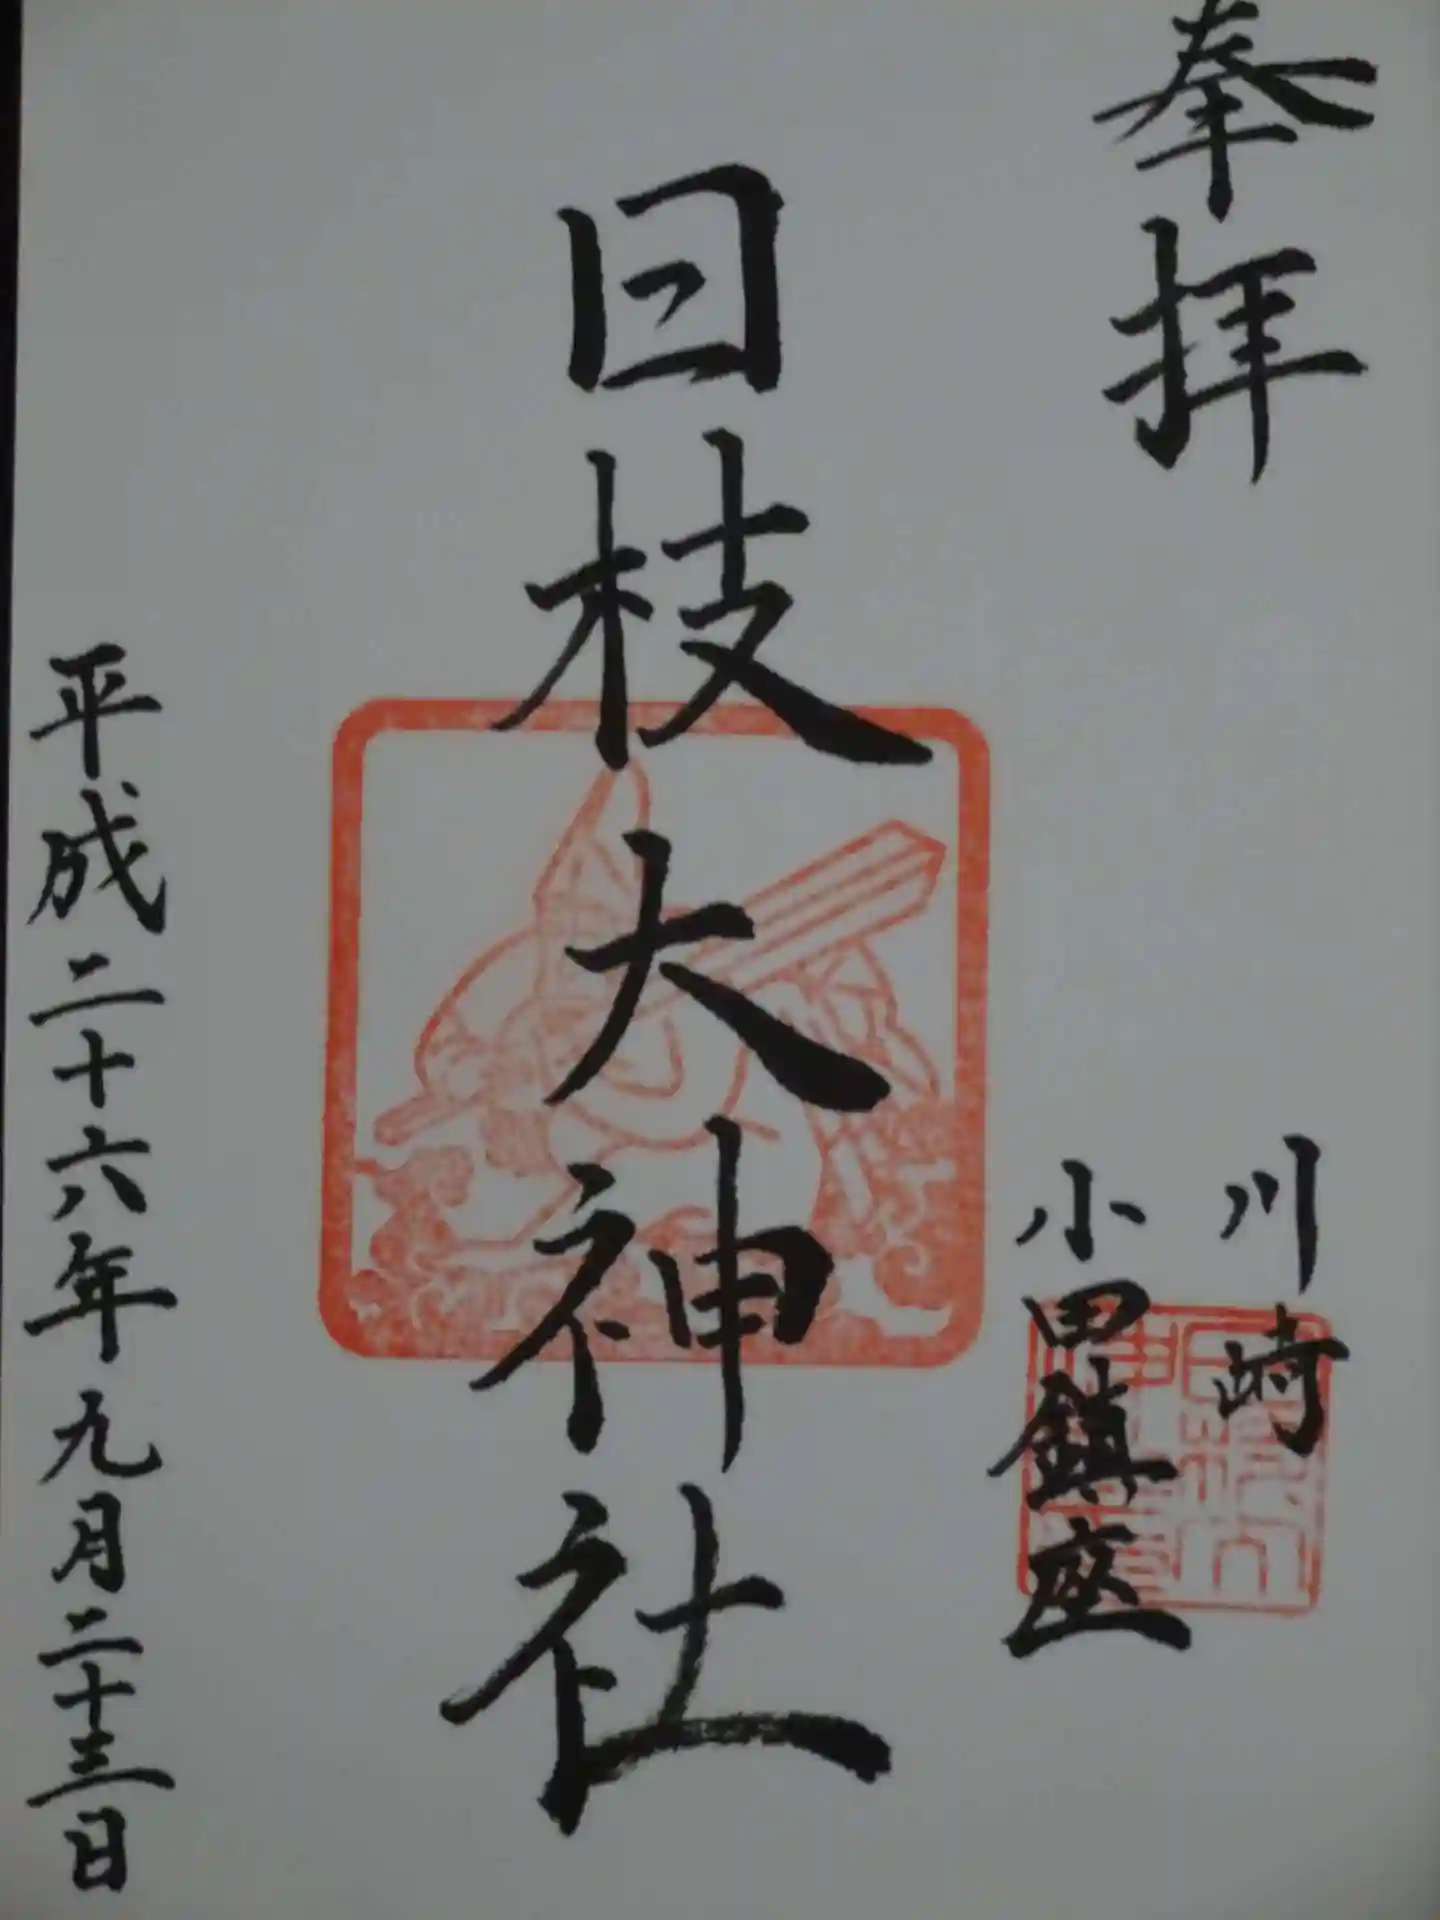 奉拝
川崎
小田鎮座
日枝大神社
平成二十六年九月二十三日